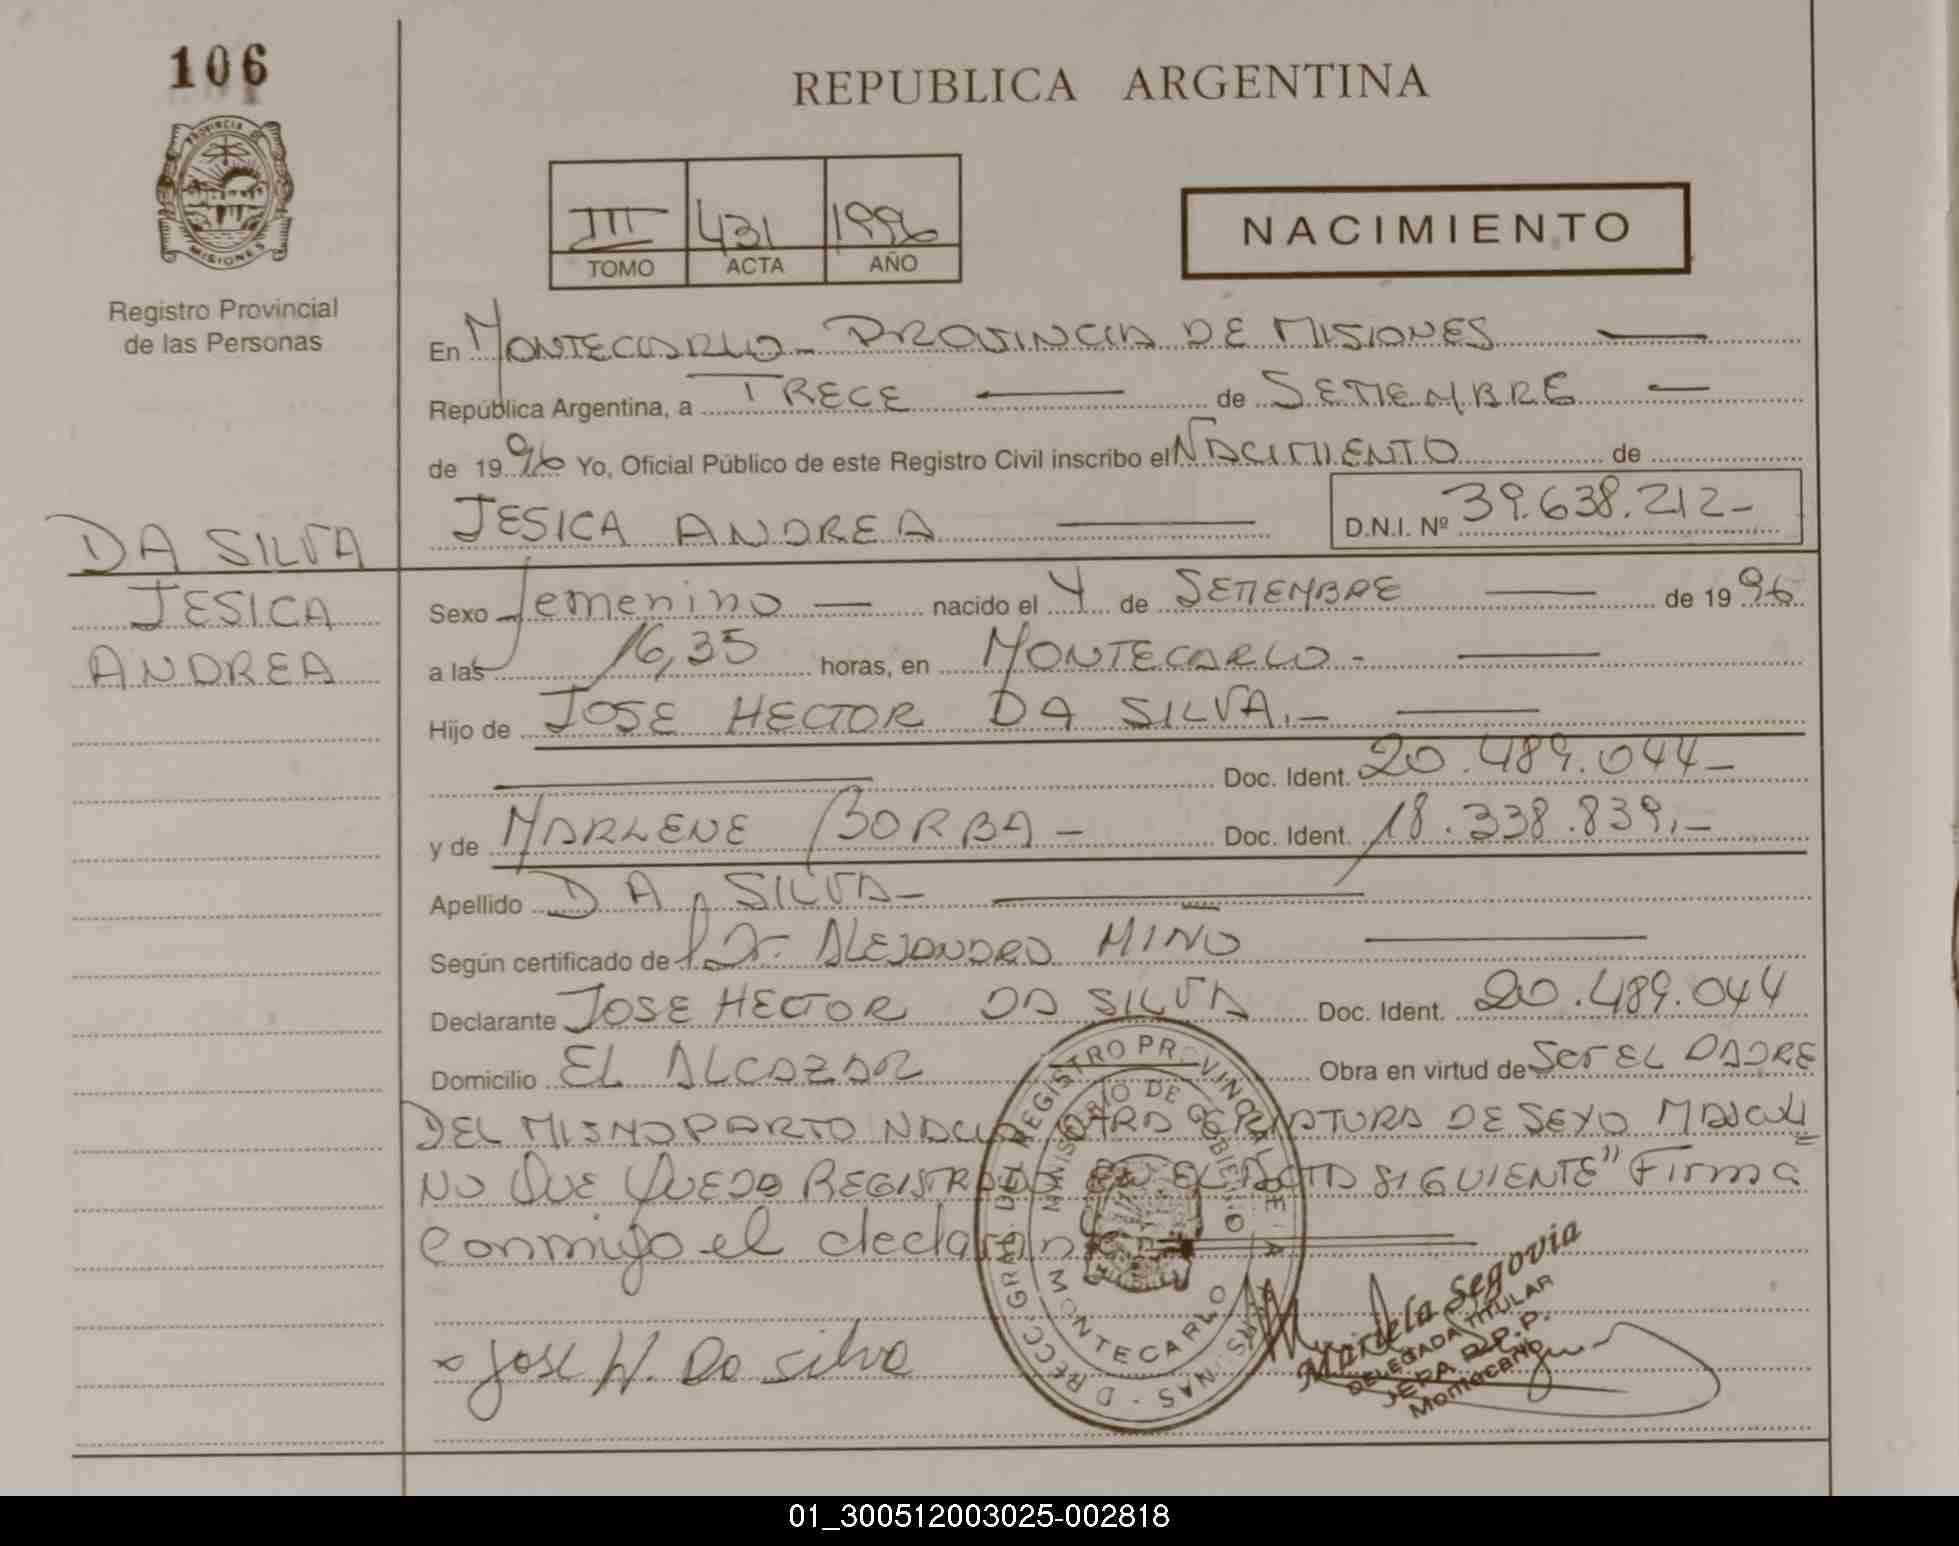 106
REPUBLICA ARGENTINA
PROVINCIA DE
MISIONES
Registro Provincial
de las Personas
III 431 1996
TOMO ACTA AÑO
NACIMIENTO
En MONTECARLO - PROVINCIA DE MISIONES
República Argentina, a TRECE de SETIEMBRE
de 1996 Yo, Oficial Público de este Registro Civil inscribo el NACIMIENTO de
JESICA ANDREA D.N.I. Nº 39.638.212-
DA SILVA
JESICA
ANDREA
Sexo femenino nacido el 4 de SETIEMBRE de 1996
a las 16,35 horas, en MONTECARLO -
Hijo de JOSE HECTOR DA SILVA.-
Doc. Ident. 20.489.044-
y de MARLENE BORBA - Doc. Ident. 18.338.839.-
Apellido DA SILVA-
Según certificado de Dr. ALEJANDRO MINO
Declarante JOSE HECTOR DA SILVA Doc. Ident. 20.489.044
Domicilio EL ALCAZAR Obra en virtud de Ser EL PADRE
DEL MISMO PARTO NACIO OTRA CRIATURA DE SEXO MASCULI=
NO QUE QUEDO REGISTRADO EN EL ACTA SIGUIENTE" Firma
conmigo el declarante
Jose H. Da silva
DIRECC. GRAL. DEL REGISTRO PROVINCIAL DE LAS
MINISTERIO DE GOBIERNO
MONTECARLO
Mariela Segovia
DELEGADA TITULAR
JEFA R.P.P.
Montecarlo
01_300512003025-002818